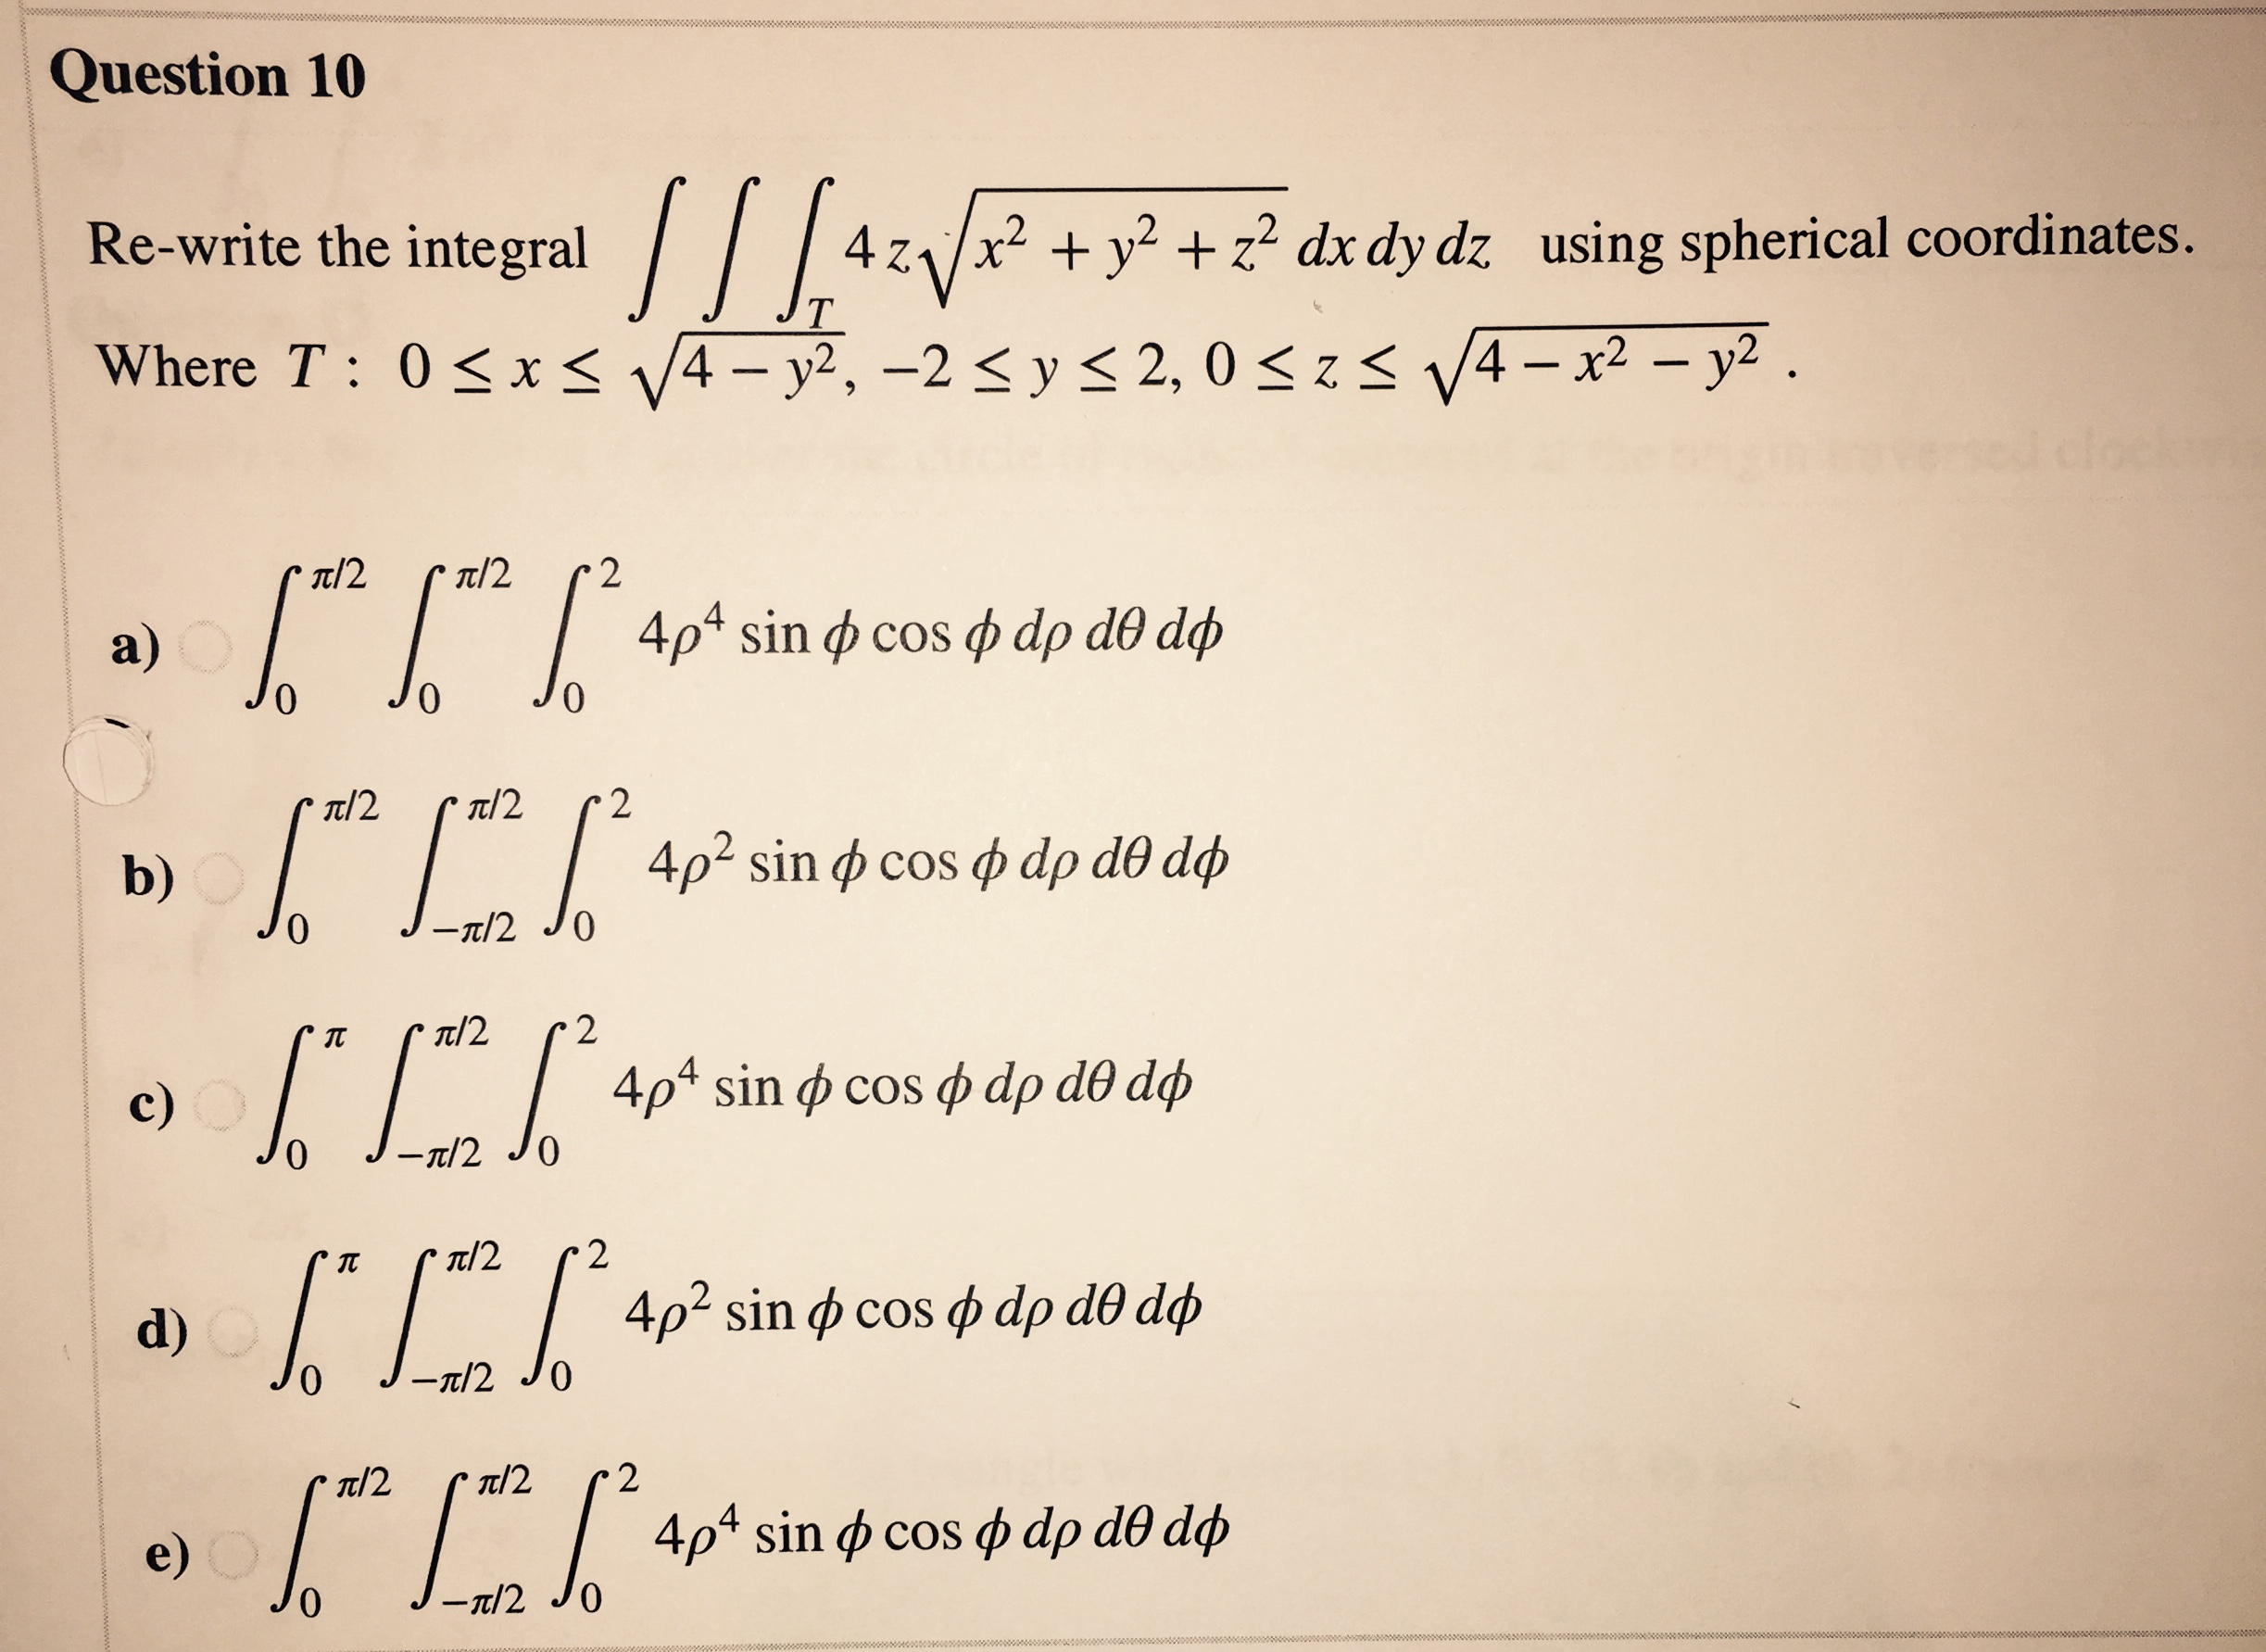 Question 10
Re-write the integral ∫ ∫ ∫_T 4 z √(x² + y² + z²) dx dy dz using spherical coordinates.
Where T : 0 ≤ x ≤ √(4 − y²), −2 ≤ y ≤ 2, 0 ≤ z ≤ √(4 − x² − y²) .
a) ∫_0^{π/2} ∫_0^{π/2} ∫_0^2 4ρ⁴ sin ϕ cos ϕ dρ dθ dϕ
b) ∫_0^{π/2} ∫_{−π/2}^{π/2} ∫_0^2 4ρ² sin ϕ cos ϕ dρ dθ dϕ
c) ∫_0^π ∫_{−π/2}^{π/2} ∫_0^2 4ρ⁴ sin ϕ cos ϕ dρ dθ dϕ
d) ∫_0^π ∫_{−π/2}^{π/2} ∫_0^2 4ρ² sin ϕ cos ϕ dρ dθ dϕ
e) ∫_0^{π/2} ∫_{−π/2}^{π/2} ∫_0^2 4ρ⁴ sin ϕ cos ϕ dρ dθ dϕ